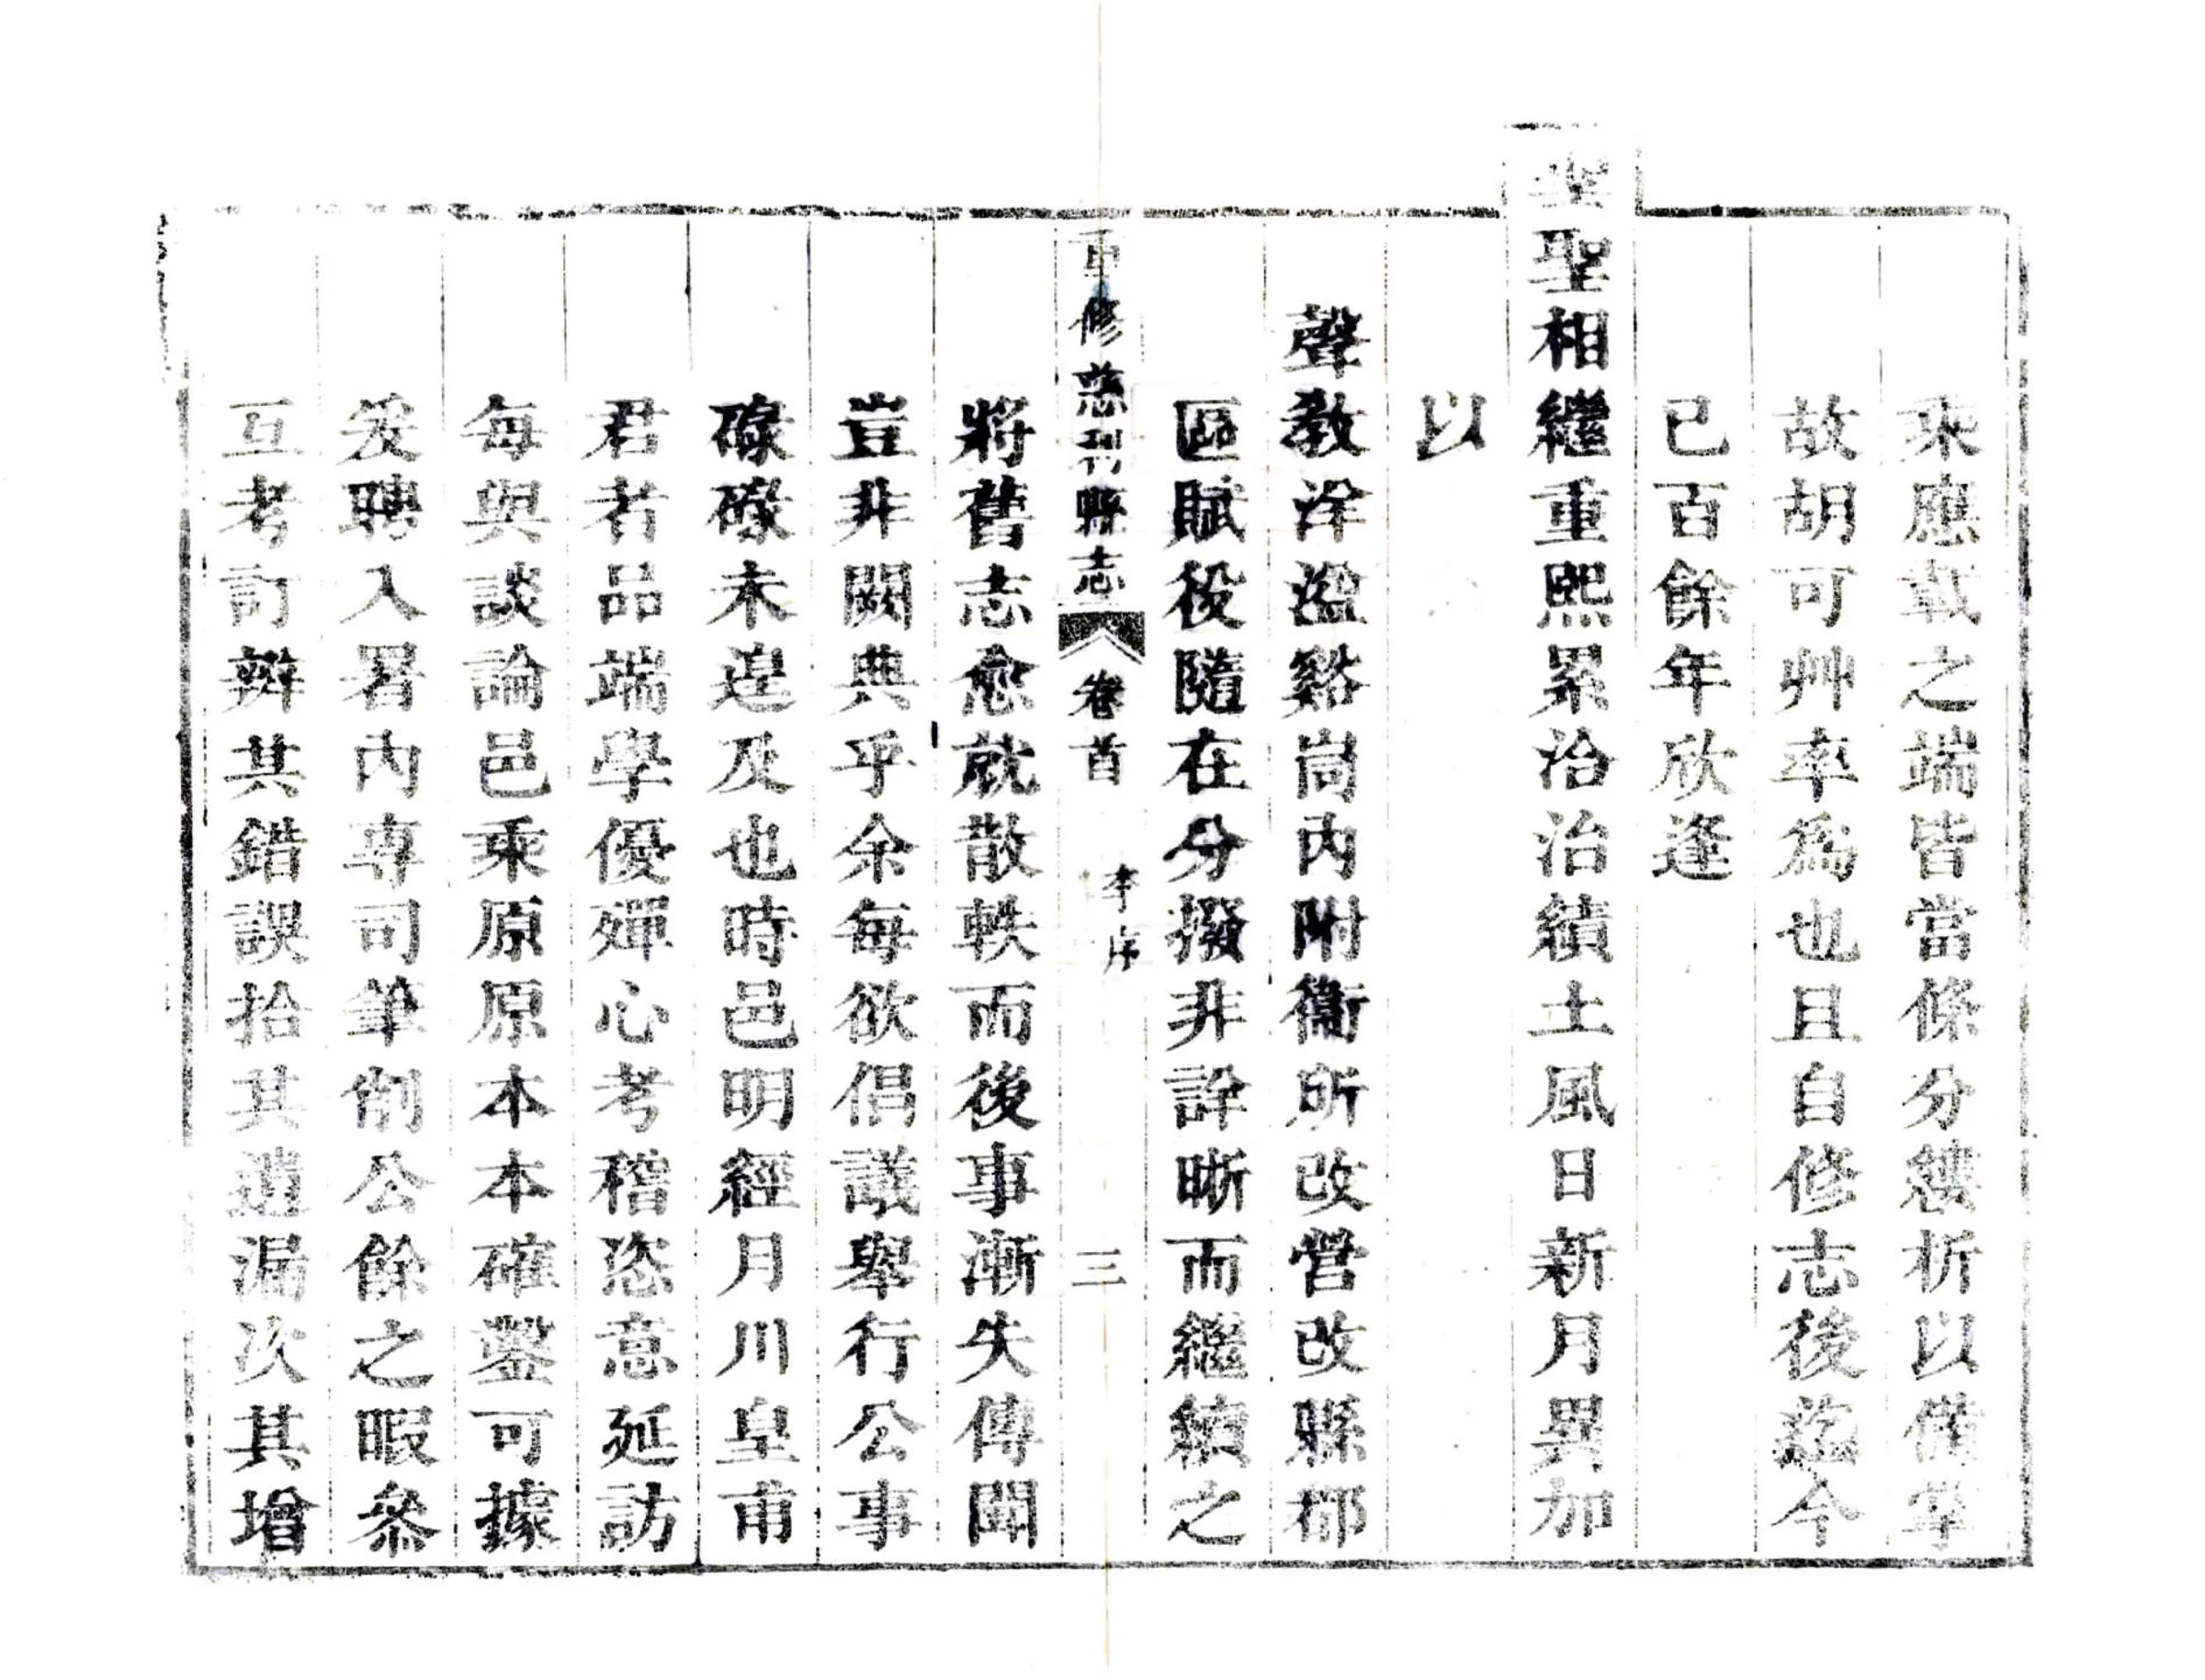 乘應載之端皆當條分縷析以備掌
故胡可艸率為也且自修志後迄今
已百餘年欣逢
聖聖相繼重熙累洽治績土風日新月異加
以
聲教洋溢谿峝內附衞所改營改縣郡
區賦役隨在分撥非詳晰而繼續之
重修慈利縣志 卷首 李序 三
將舊志愈就散軼而後事漸失傳聞
豈非闕典乎余每欲倡議舉行公事
碌碌未遑及也時邑明經月川皇甫
君者品端學優殫心考稽恣意延訪
每與談論邑乘原原本本確鑿可據
爰聘入署內專司筆削公餘之暇叅
互考訂辨其錯誤拾其遺漏次其增